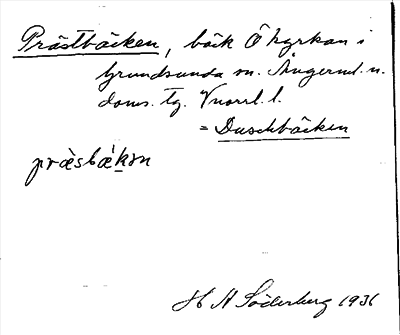 Prästbäcken, bäk Ö kyrkan i
Grundsunda sn. Ångerml. n.
doms. tg. Vnorrl. l.
= Duschbäcken
præ̀sbækon
H A Söderberg 1931